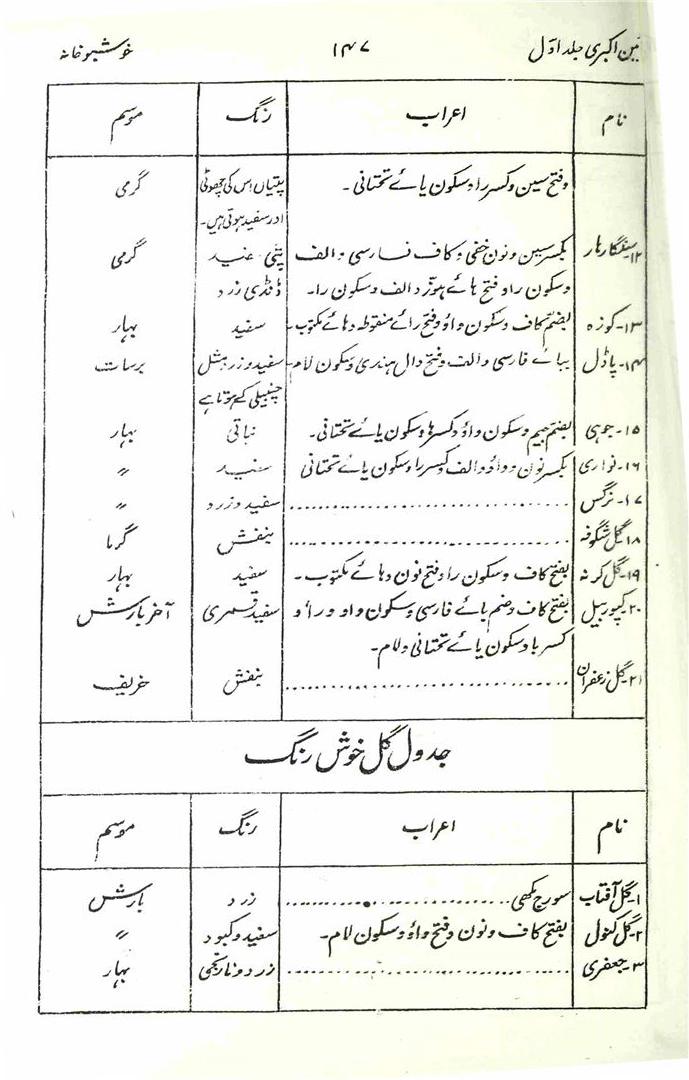 ئین اکبری جلد اوّل ۱۴۷ خوشبو خانہ
نام اعراب رنگ موسم
وفتح سین و کسر را و سکون یائے تحتانی۔ پتیاں اس کی چھوٹی گرمی
اور سفید ہوتی ہیں۔
۱۲۔سنگار ہار بکسر سین و نون خفی و کاف فارسی و الف پتّی سفید گرمی
و سکون را و فتح ہائے ہوّز و الف و سکون را۔ ڈنڈی زرد
۱۳۔کوزہ بضم کاف و سکون واؤ و فتح زائے منقوطہ و ہائے مکتوب۔ سفید بہار
۱۴۔پاڈل ببائے فارسی و الف و فتح دال ہندی و سکون لام۔ سفید و زرد مثل برسات
چنبیلی کے ہوتا ہے
۱۵۔جوہی بضم جیم و سکون واؤ و کسر ہا و سکون یائے تحتانی۔ نباتی بہار
۱۶۔نواری بکسر نون و واؤ و الف و کسر را و سکون یائے تحتانی سفید 〃
۱۷۔نرگس .......................... سفید و زرد 〃
۱۸۔گل شگوفہ .......................... بنفش گرما
۱۹۔گل کرنہ بفتح کاف و سکون را و فتح نون و ہائے مکتوب۔ سفید بہار
۲۰۔کپور بیل بفتح کاف و ضم بائے فارسی و سکون و او و را و سفید قمری آخر بارش
کسر با و سکون یائے تحتانی و لام۔
۲۱۔گل زعفران .......................... بنفش خریف
جدول گل خوش رنگ
نام اعراب رنگ موسم
۱۔گل آفتاب سورج مکھی.......................... زرد بارش
۲۔گل کنول بفتح کاف و نون و فتح واؤ و سکون لام۔ سفید و کبود 〃
۳۔جعفری .......................... زرد و نارنجی بہار